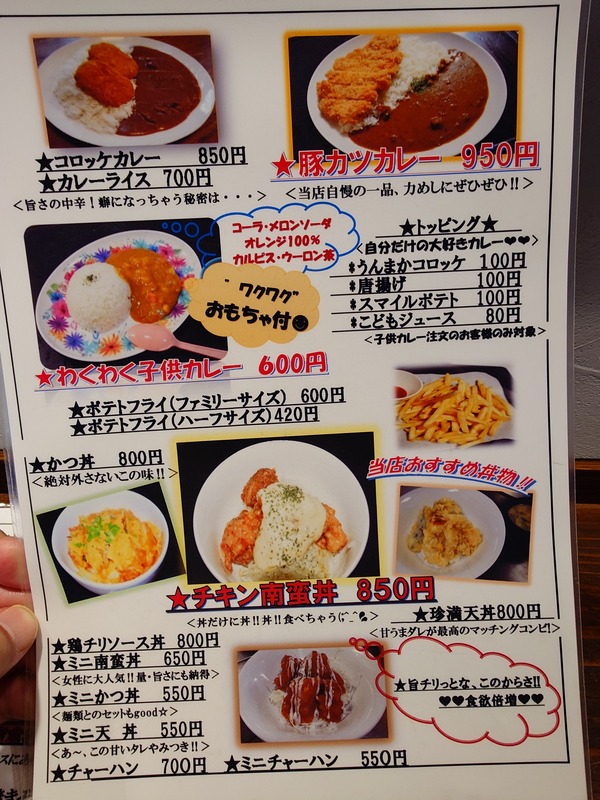 ★コロッケカレー 850円
★カレーライス 700円
<旨さの中辛！癖になっちゃう秘密は・・・>
★豚カツカレー 950円
<当店自慢の一品、力めしにぜひぜひ!!>
コーラ・メロンソーダ
オレンジ100%
カルピス・ウーロン茶
"ワクワグ"
おもちゃ付☻
★わくわく子供カレー 600円
★トッピング★
<自分だけの大好きカレー❤❤>
$うんまかコロッケ 100円
$唐揚げ 100円
$スマイルポテト 100円
$こどもジュース 80円
<子供カレー注文のお客様のみ対象>
★ポテトフライ(ファミリーサイズ) 600円
★ポテトフライ(ハーフサイズ)420円
★かつ丼 800円
<絶対外さないこの味!!>
当店おすすめ丼物!!
★チキン南蛮丼 850円
<丼だけに丼!!丼!!食べちゃう
★珍満天丼800円
<甘うまダレが最高のマッチングコンビ!>
★鶏チリソース丼 800円
★ミニ南蛮丼 650円
<女性に大人気!!量・旨さにも納得>
★ミニかつ丼 550円
<麺類とのセットもgood☆>
★ミニ天 丼 550円
<あ～、この甘いタレやみつき!!>
★チャーハン 700円
★ミニチャーハン 550円
★旨チリっとな、このからさ!!
❤❤食欲倍増❤❤